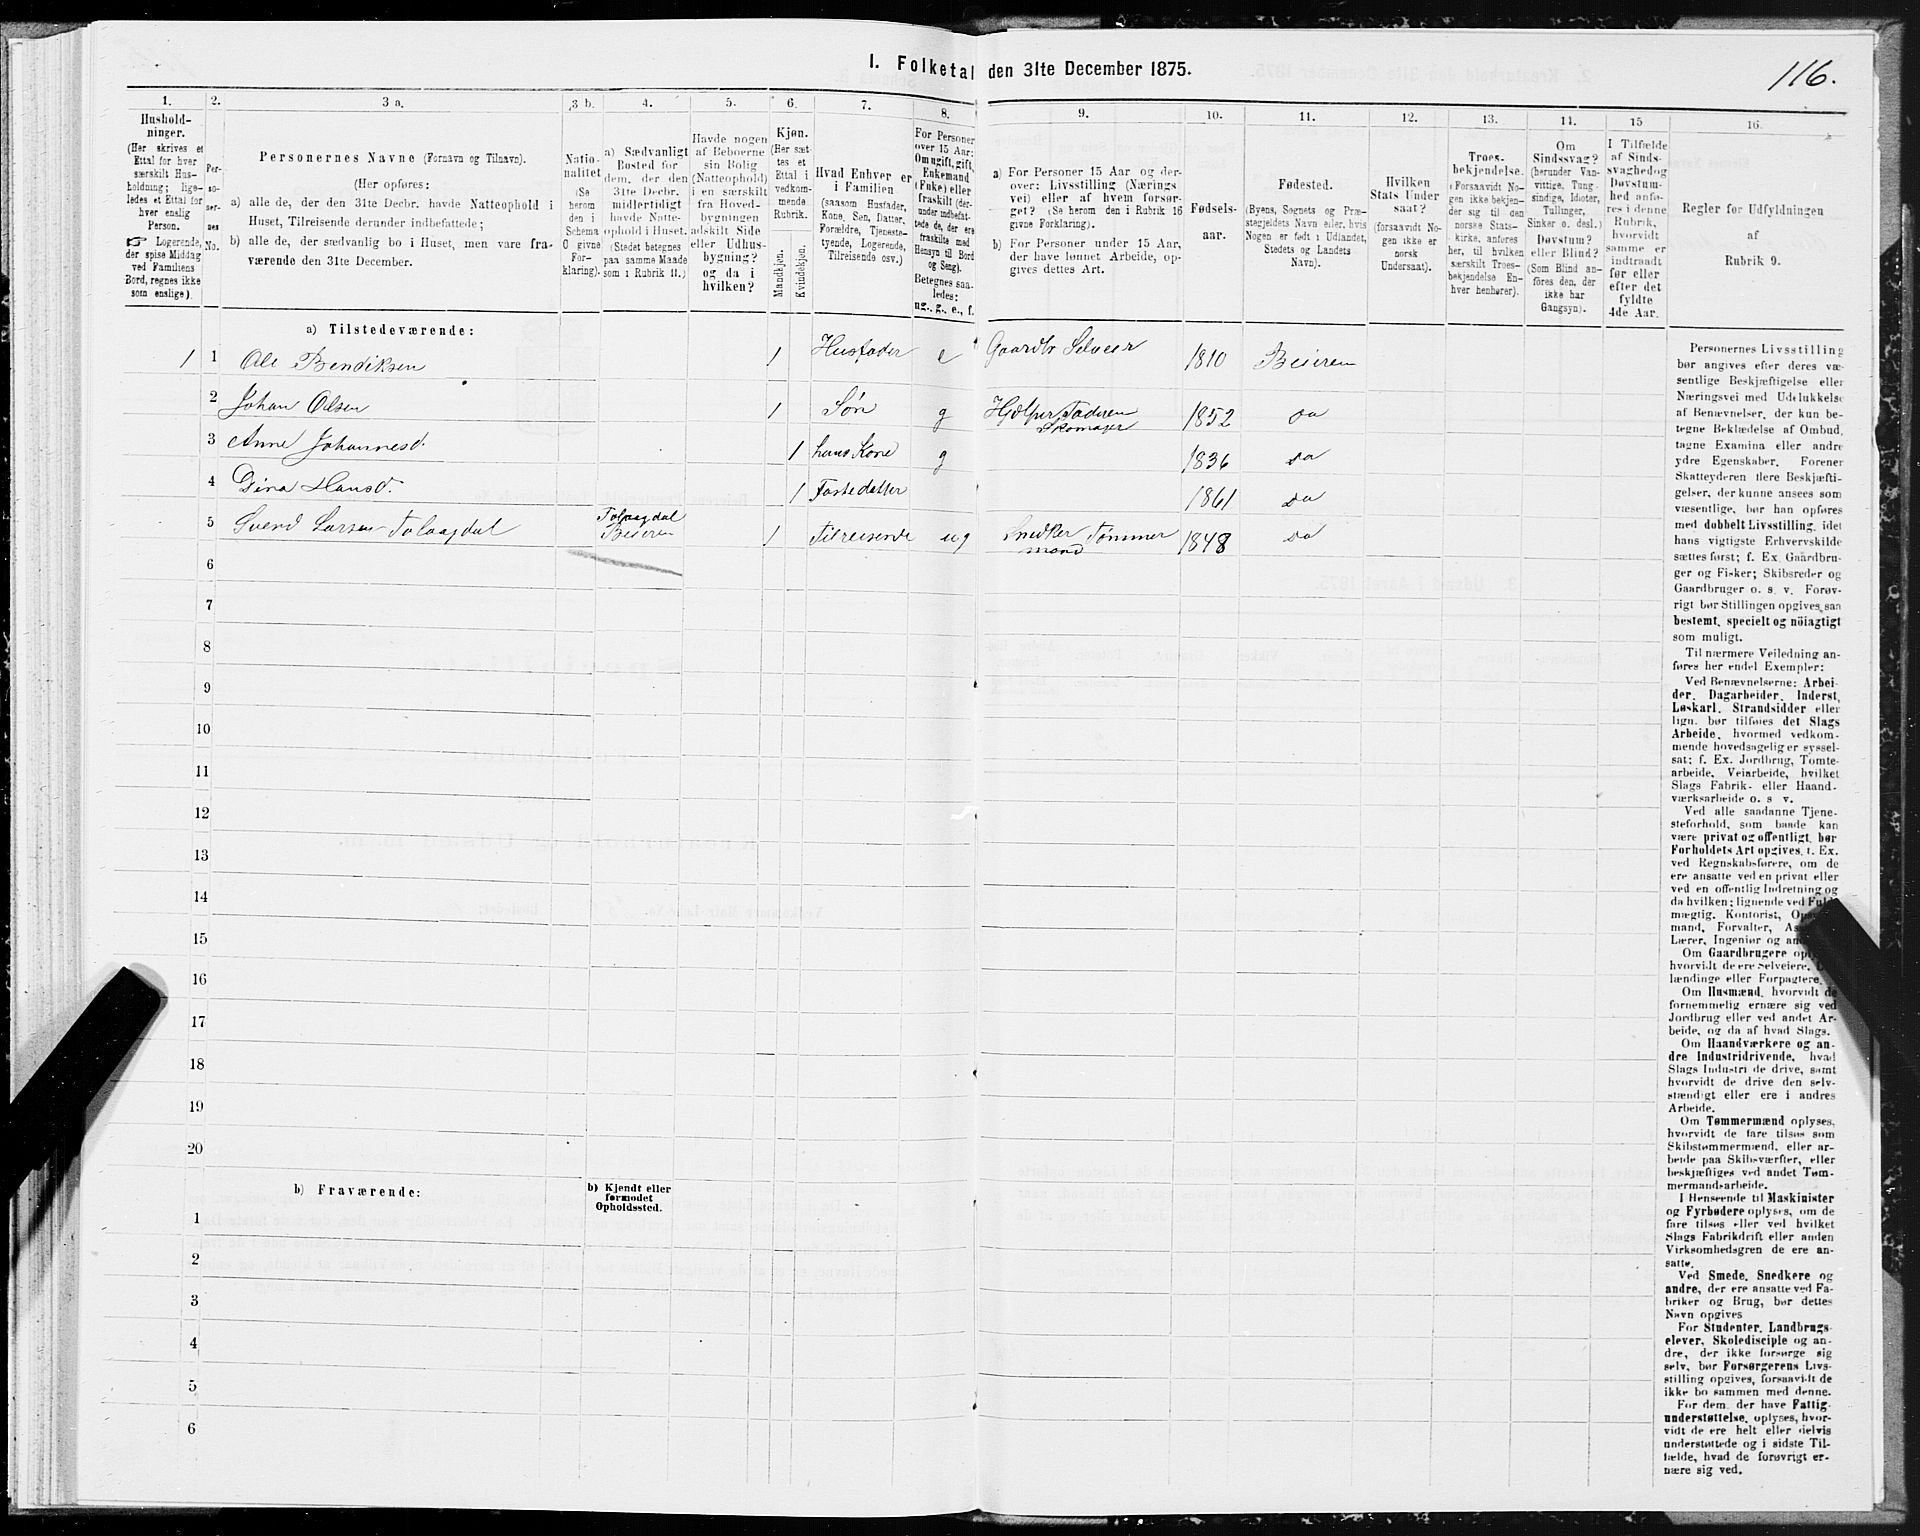 1. Folketal den 31te December 1875.
116.
1.
2.
3 a.
3 b.
4.
5.
6.
7.
8.
9.
10.
11.
12.
13.
14.
15
16.
Hushold-
ninger.
(Her skrives et
Ettal for hver
særskilt Hus-
holdning; lige-
ledes et Ettal for
hver enslig
Person.
☞ Logerende,
der spise Middag
ved Familiens
Bord, regnes ikke
som enslige).
Per-
so-
ner-
nes
No.
Personernes Navne (Fornavn og Tilnavn).
(Her opføres:
a) alle de, der den 31te Decbr. havde Natteophold i
Huset, Tilreisende derunder indbefattede;
b) alle de, der sædvanlig bo i Huset, men vare fra-
værende den 31te December.
Natio-
nalitet
(Se
herom
den i
Schema
O givne
For-
klaring).
a) Sædvanligt
Bosted for
dem, der den
31te Decbr.
midlertidigt
havde Natte-
ophold i Huset.
(Stedet betegnes
paa samme Maade
som i Rubrik 11.)
Havde nogen
af Beboerne
sin Bolig
(Natteophold)
i en særskilt
fra Hoved-
bygningen
adskilt Side
eller Udhus-
bygning?
og da i
hvilken?
Kjøn.
(Her sæt-
tes et
Ettal i
vedkom-
mende
Rubrik.
Mandkjøn.
Kvindekjøn.
Hvad Enhver er
i Familien
(saasom Husfader,
Kone, Søn, Datter,
Forældre, Tjeneste-
tyende, Logerende,
Tilreisende osv.)
For Personer
over 15 Aar:
Om ugift, gift,
Enkemand
(Enke) eller
fraskilt (der-
under indbefat-
tede de, der ere
fraskilte med
Hensyn til Bord
og Seng).
Betegnes saa-
ledes:
ug., g., e., f.
a) For Personer 15 Aar og der-
over: Livsstilling (Nærings-
vei) eller af hvem forsør-
get? (Se herom den i Rubrik 16
givne Forklaring).
b) For Personer under 15 Aar,
der have lønnet Arbeide, op-
gives dettes Art.
Fødsels-
aar.
Fødested.
(Byens, Sognets og Præ-
stegjeldets Navn eller, hvis
Nogen er født i Udlandet,
Stedets og Landets
Navn).
Hvilken
Stats Under
saat?
(forsaavidt No-
gen ikke er
norsk
Undersaat).
Troes-
bekjendelse.
(Forsaavidt No-
gen ikke bekjen-
der sig til den
norske Stats-
kirke, anføres
her, til hvilken
særskilt Troes-
bekjendelse En-
hver henhører).
Om
Sindssvag?
(herunder Van-
vittige, Tung-
sindige, Idioter,
Tullinger,
Sinker o. desl.)
Døvstum?
eller Blind?
(Som Blind an-
føres den, der
ikke har
Gangsyn).
I Tilfælde
af Sinds-
svaghed og
Døvstum-
hed anfø-
res i denne
Rubrik,
hvorvidt
samme er
indtraadt
før eller
efter det
fyldte
4de Aar.
Regler for Udfyldningen
af
Rubrik 9.
a) Tilstedeværende:
1 1 Ole Bendiksen 1 Husfader e Gaardbr Selveier 1810 Beieren
2 Johan Olsen 1 Søn g Hjelper Faderen
Skomager 1852 da
3 Anne Johannesd. 1 hans Kone g 1836 da
4 Gina Hansd. 1 Fostedatter 1861 da
5 Svend Larsen Tolaagdal Tolaagdal
Beieren 1 Tilreisende ug Snedker Tømmer
mand 1848 da
6
7
8
9
10
11
12
13
14
15
16
17
18
19
20
b) Fraværende:
b) Kjendt eller
formodet
Opholdssted.
1
2
3
4
5
6
Personernes Livsstilling
bør angives efter deres væ-
sentlige Beskjæftigelse eller
Næringsvei med Udelukkelse
af Benævnelser, der kun be-
tegne Beklædelse af Ombud,
tagne Examina eller andre
ydre Egenskaber. Forener
Skatteyderen flere Beskjæfti-
gelser, der kunne ansees som
væsentlige, bør han opføres
med dobbelt Livsstilling, idet
hans vigtigste Erhvervskilde
sættes først; f. Ex. Gaardbru-
ger og Fisker; Skibsreder og
Gaardbruger o. s. v. Forøv-
rigt bør Stillingen opgives saa
bestemt, specielt og nöiagtigt
som muligt.
Til nærmere Veiledning an-
føres her endel Exempler:
Ved Benævnelserne: Arbei-
der, Dagarbeider, Inderst,
Løskarl, Strandsidder eller
lign. bør tilføies det Slags
Arbeide, hvormed vedkom-
mende hovedsagelig er syssel-
sat; f. Ex. Jordbrug, Tomte-
arbeide, Veiarbeide, hvilket
Slags Fabrik- eller Haand-
værksarbeide o. s v.
Ved alle saadanne Tjene-
steforhold, som baade kan
være privat og offentligt, bør
Forholdets Art opgives, f. Ex.
ved Regnskabsførere, om de
ere ansatte ved en privat eller
ved en offentlig Indretning og
da hvilken; lignende ved Fuld-
mægtig, Kontorist,
mand, Forvalter,
Lærer, Ingeniør og
Om Gaardbrugere
hvorvidt de ere Selveiere,
lændinge eller Forpagtere.
Om Husmænd, hvorvidt de
fornemmelig ernære sig ved
Jordbrug eller ved andet Ar-
beide, og da af hvad Slags.
Om Haandværkere og an-
dre Industridrivende, hvad
Slags Industri de drive, samt
hvorvidt de drive den selv-
stændigt eller ere i andres
Arbeide.
Om Tømmermænd oplyses,
hvorvidt de fare tilsøs som
Skibstømmermænd, eller ar-
beide paa Skibsværfter, eller
beskjæftiges ved andet Tøm-
mermandsarbeide.
I Henseende til Maskinister
og Fyrbødere oplyses, om de
fare tilsøs eller ved hvilket
Slags Fabrikdrift eller anden
Virksomhedsgren de ere an-
satte.
Ved Smede, Snedkere og
andre, der ere ansatte ved Fa-
briker og Brug, bør dettes
Navn opgives
For Studenter, Landbrugs-
elever, Skoledisciple og an-
dre, der ikke forsørge sig
selv, bør Forsørgerens Livs-
stilling opgives, forsaavidt de
ikke bo sammen med denne.
For dem, der have Fattig-
understøttelse, oplyses, hvor-
vidt de ere helt eller delvis
understøttede og i sidste Til-
fælde, hvad de forøvrigt er-
nære sig ved.